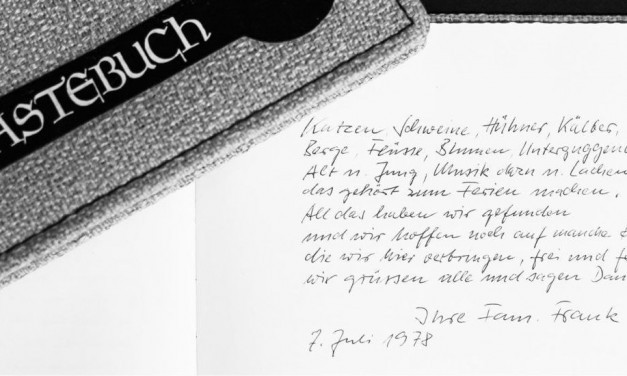 ÄSTEBUCH
Katzen, Schweine, Hühner, Kälber,
Berge, Flüsse, Blumen, Unterguggen
Alt u. Jung, Musik dazu u. Lachen
das gehört zum Ferien machen.
All das haben wir gefunden
und wir hoffen noch auf manche
die wir hier verbringen, frei und
wir grüssen alle und sagen Dan
Ihre Fam. Frank
7. Juli 1978